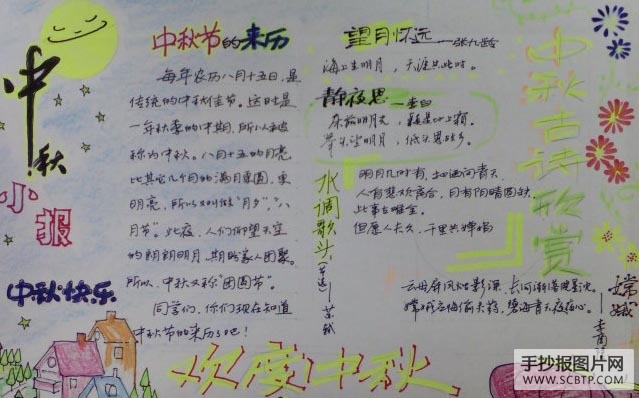 中秋
小报
中秋快乐
中秋节的来历
每年农历八月十五日，是
传统的中秋佳节。这时是
一年秋季的中期，所以被
称为中秋。八月十五的月亮
比其它几个月的满月更圆，更
明亮，所以又叫做"月夕"，"八
月节"。此夜，人们仰望天空
的朗朗明月，期盼家人团聚。
所以，中秋又称"团圆节"。
同学们，你们现在知道
中秋节的来历了吧！
望月怀远——张九龄
海上生明月，天涯共此时。
静夜思——李白
床前明月光，疑是地上霜。
举头望明月，低头思故乡。
水调歌头（节选）——苏轼
明月几时有，把酒问青天
人有悲欢离合，月有阴晴圆缺，
此事古难全。
但愿人长久，千里共婵娟
中秋古诗欣赏
云母屏风烛影深，长河渐落晓星沉。
嫦娥应悔偷灵药，碧海青天夜夜心。
嫦娥——李商
欢度中秋
手抄报图片网
WWW.SCBTP.COM